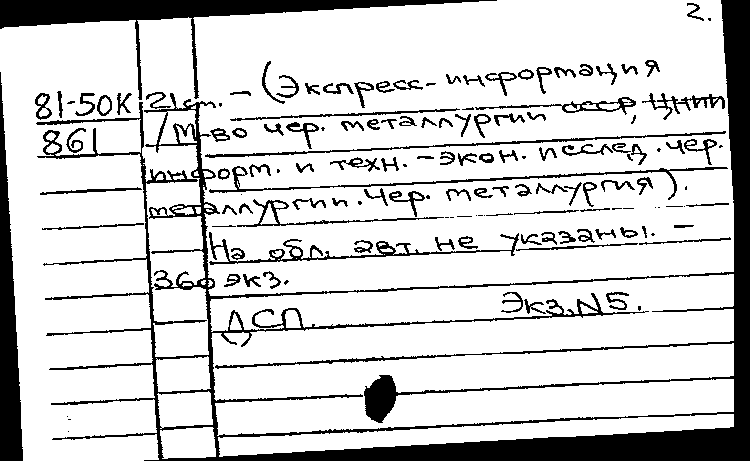 2.
81-50К 21 ст. – (Экспресс-информация
861 /М-во чер. металлургии СССР, ЦНИИ
информ. и техн.-экон. исслед. чер.
металлургии. Чер. металлургия).
На обл. авт. не указаны. –
360 экз.
ДСП. Экз. N5.